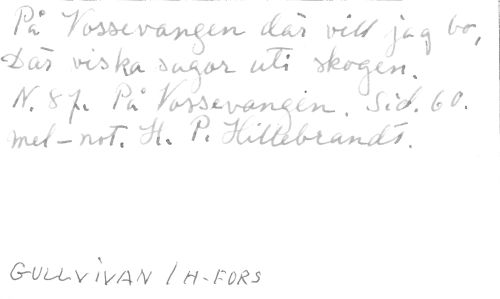 På Vossevangen där vill jag bo,
Där viska sagor uti skogen.
N. 87. På Vossevangen. Sid. 60.
mel-not. H. P. Hillebrandt.
GULLVIVAN / H-FORS